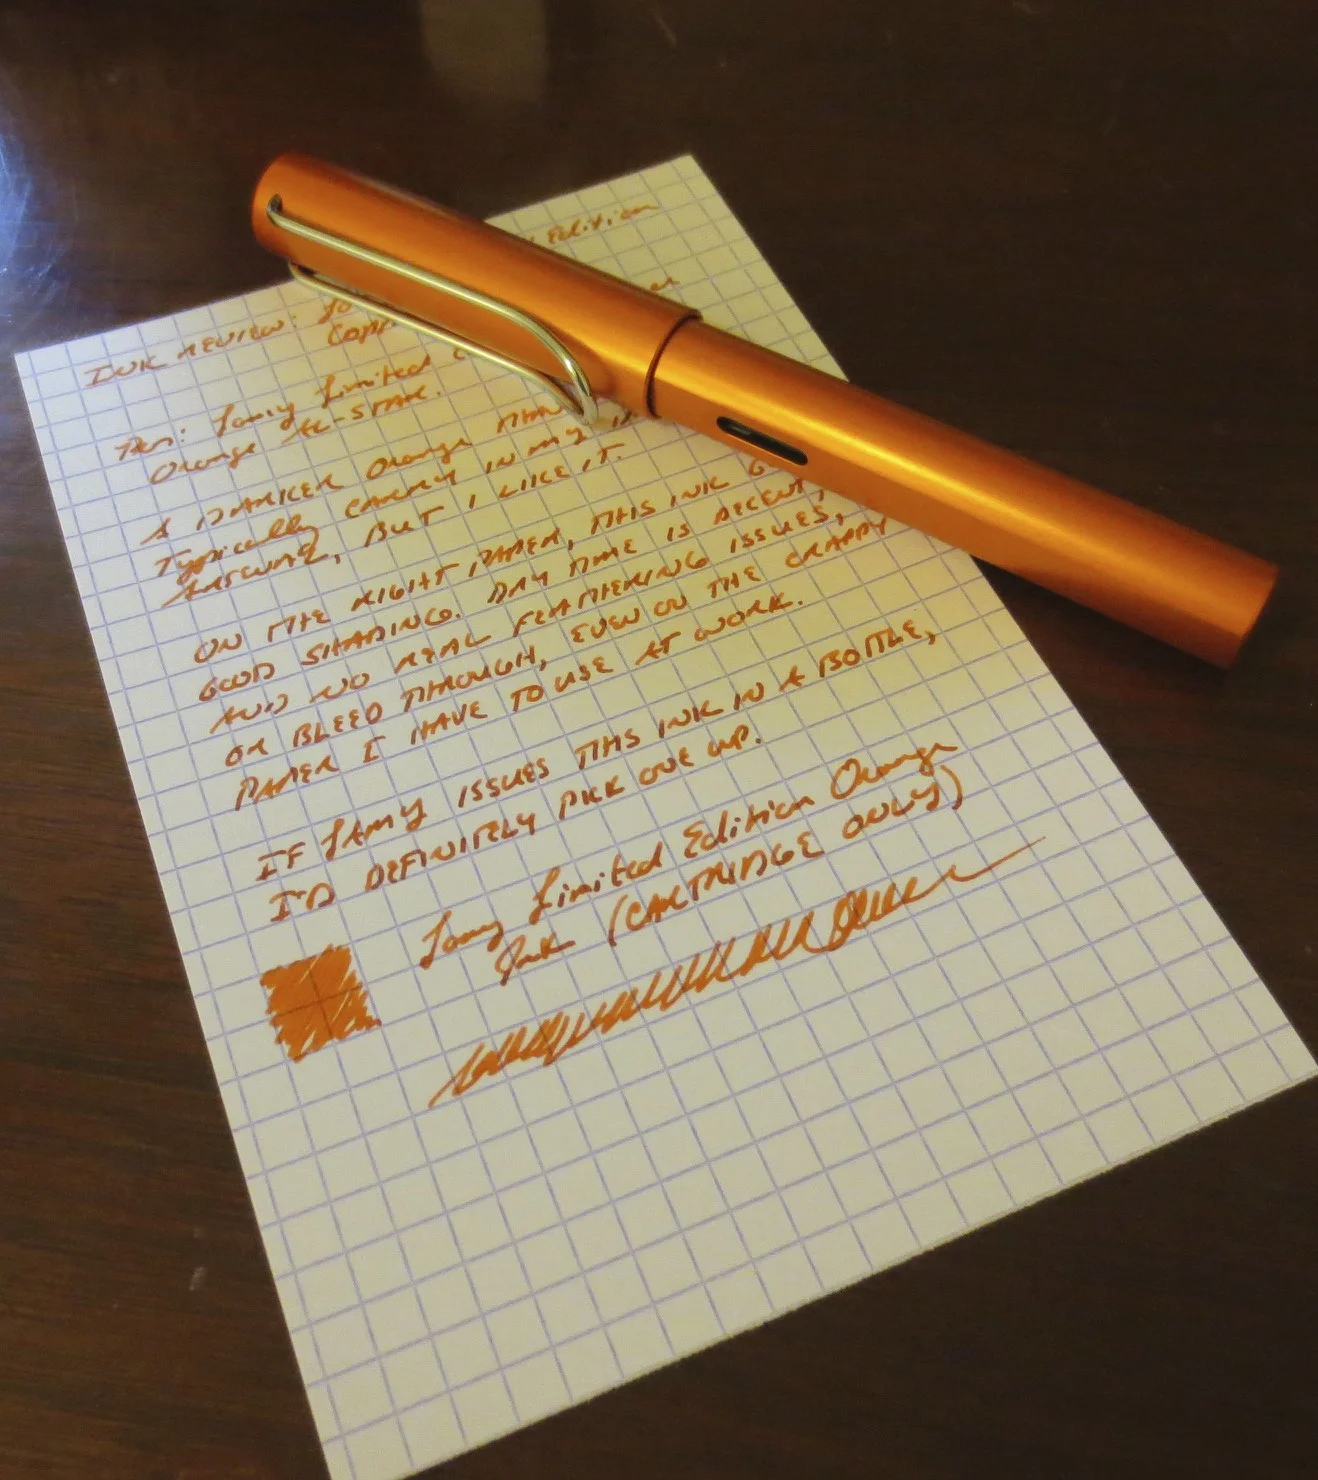 Ink Review: Edition
Copper
Pen: Lamy Limited
Orange Al-Star.
A DARKER Orange THAN
Typically CARRY IN my
ARTWORK, BUT I LIKE IT.
ON THE RIGHT PAPER, THIS INK
GOOD SHADING. DRY TIME IS DECENT,
AND NO REAL FEATHERING ISSUES,
OR BLEED THROUGH, EVEN ON THE CRAPPY
PAPER I HAVE TO USE AT WORK.
IF LAMY ISSUES THIS INK IN A BOTTLE,
I'D DEFINITELY PICK ONE UP.
Lamy Limited Edition Orange
Ink (CARTRIDGE ONLY)